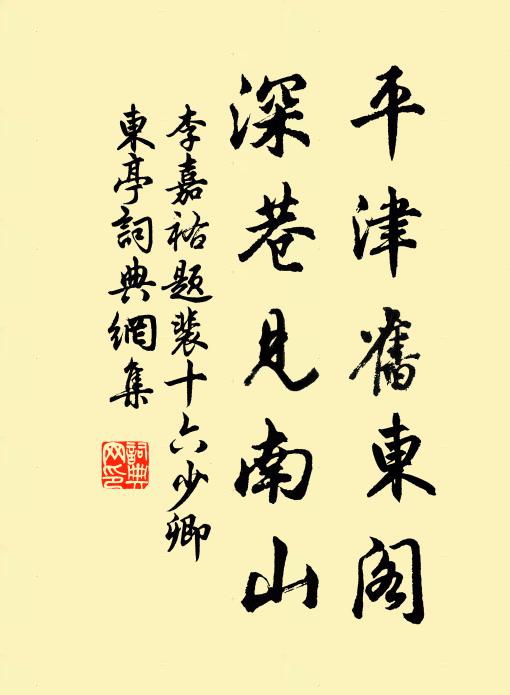 平津舊東閣
深巷見南山
李嘉祐題裴十六少卿
東亭詞典網集
詞典
网印